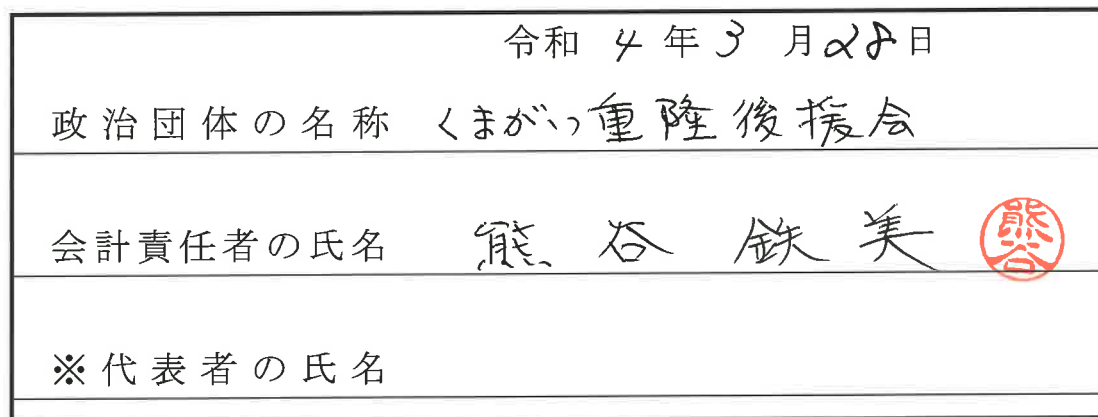 令和 4 年 3 月 28 日
政治団体の名称 くまがい重隆後援会
会計責任者の氏名 熊谷 鉄美 熊谷
※代表者の氏名